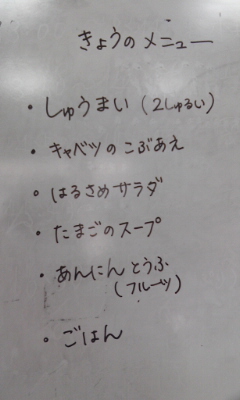 きょうのメニュー
・しゅうまい（2しゅるい）
・キャベツのこぶあえ
・はるさめサラダ
・たまごのスープ
・あんにんとうふ
（フルーツ）
・ごはん